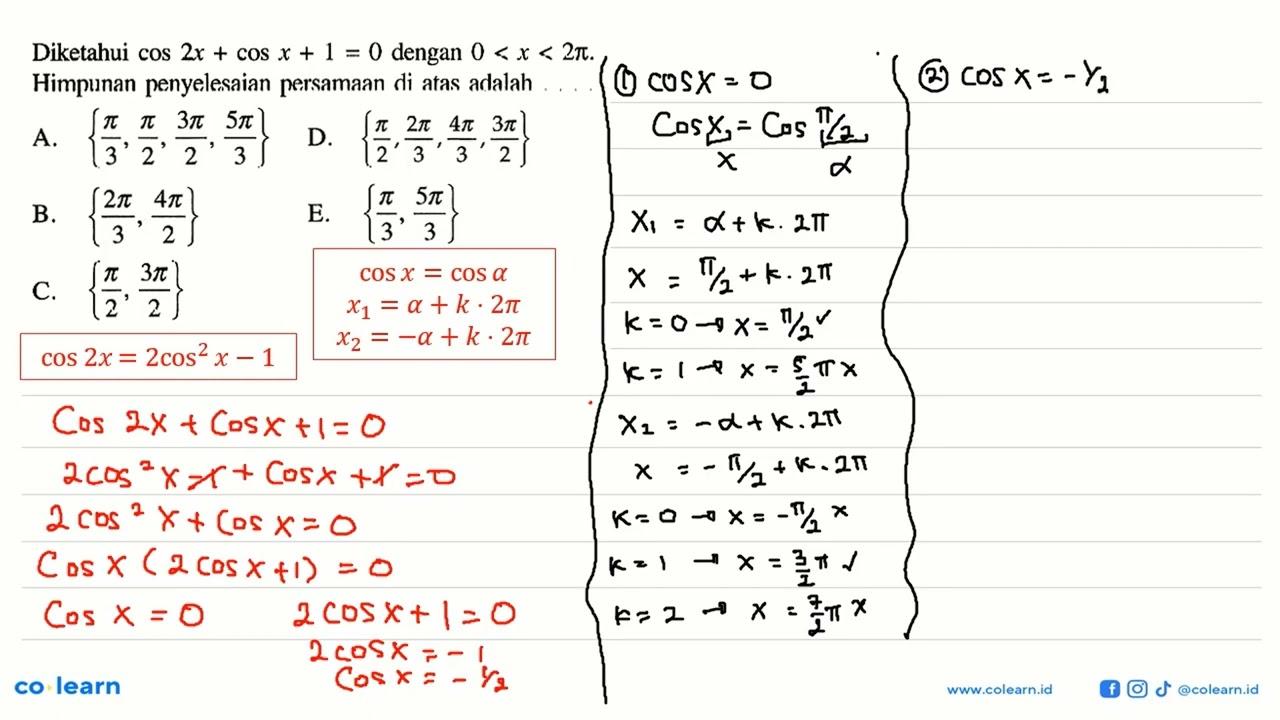 Diketahui cos 2x + cos x + 1 = 0 dengan 0 < x < 2π.
Himpunan penyelesaian persamaan di atas adalah . . . .
A. {π/3, π/2, 3π/2, 5π/3}
D. {π/2, 2π/3, 4π/3, 3π/2}
B. {2π/3, 4π/2}
E. {π/3, 5π/3}
C. {π/2, 3π/2}
cos x = cos α
x₁ = α + k · 2π
x₂ = −α + k · 2π
cos 2x = 2cos² x − 1
Cos 2x + Cos x + 1 = 0
2cos² x − 1 + Cos x + 1 = 0
2 cos² x + Cos x = 0
Cos x (2 cos x + 1) = 0
Cos x = 0
2 cos x + 1 = 0
2 cos x = − 1
Cos x = − 1/2
① cos x = 0
Cos x = Cos π/2
x α
x₁ = α + k . 2π
x = π/2 + k . 2π
k = 0 → x = π/2 ✓
k = 1 → x = 5/2 π x
x₂ = − α + k . 2π
x = − π/2 + k . 2π
k = 0 → x = − π/2 x
k = 1 → x = 3/2 π ✓
k = 2 → x = 7/2 π x
② cos x = − 1/2
co·learn
www.colearn.id
@colearn.id